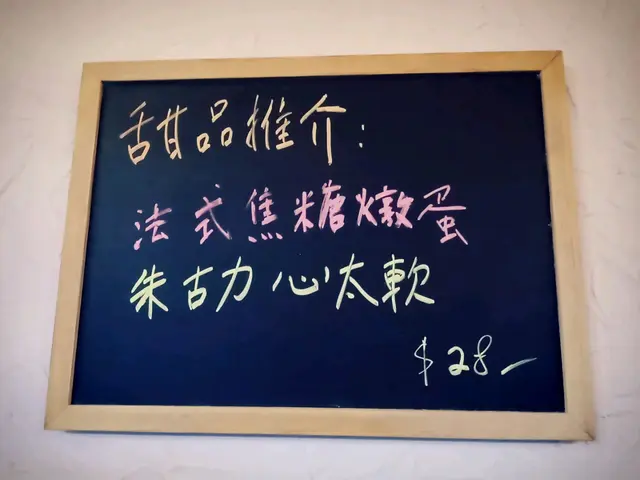 甜品推介:
法式焦糖燉蛋
朱古力心太軟
$28